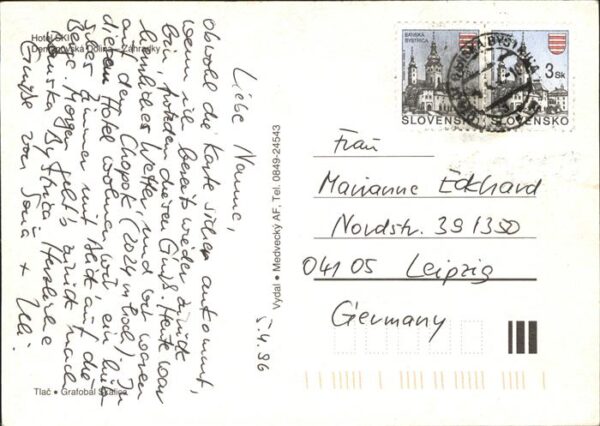 Hotel SKI
Demänovská Dolina - Záhradky
Liebe Nanne,
Obwohl die Karte sicher ankommt,
wenn ich bereits wieder zurück
bin, trotzdem diesen Gruß. Heute war
herrliches Wetter, und wir waren
auf dem Chopok (2024 m hoch). In
diesem Hotel wohnen wir, ein
Zimmer mit Blick auf die
Berge. Morgen geht's zurück nach
Banská Bystrica. Herzliche
Grüße von Sonja + Uli
5.4.96
Tlač • Grafobal Skalica
Vydal • Medvecký AF, Tel. 0849-24543
BANSKÁ
BYSTRICA
3 Sk
SLOVENSKO
SLOVENSKO
BANSKÁ BYSTRICA
Frau
Marianne Eckhard
Nordstr. 39 1350
04105 Leipzig
Germany